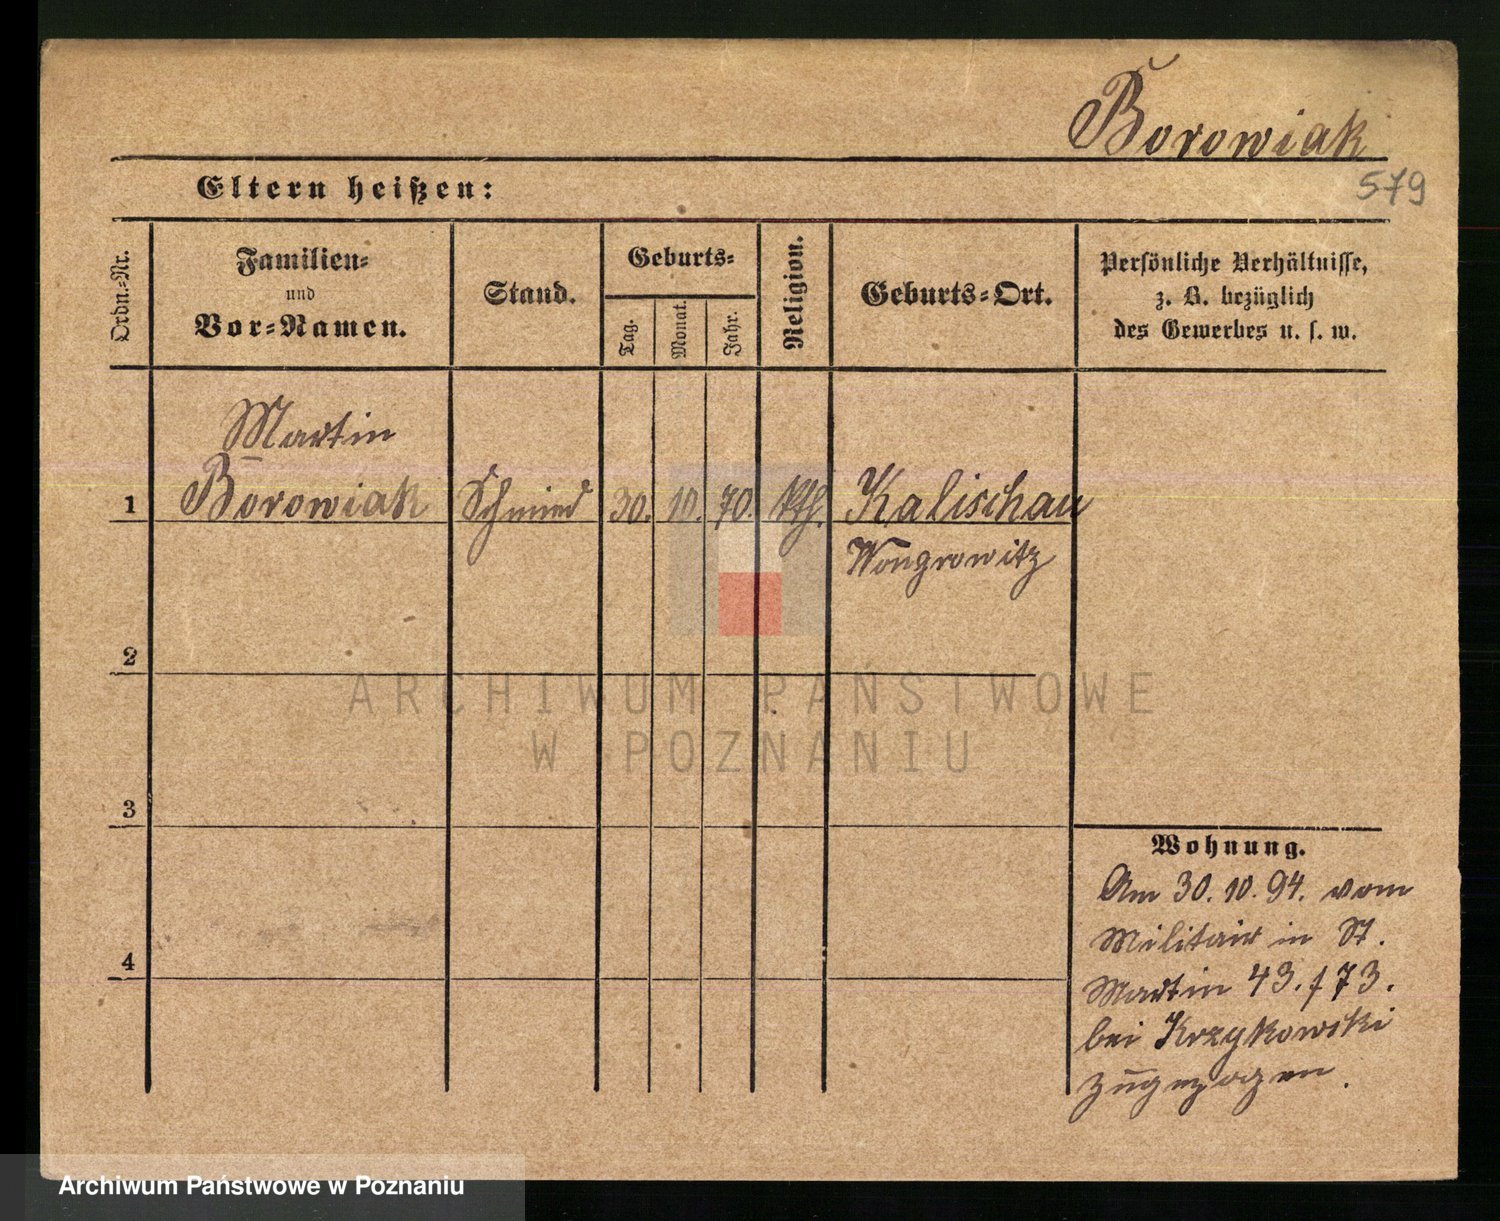 Borowiak
579
Eltern heißen:
Ordn.-Nr.
Familien-
und
Vor-Namen.
Stand.
Geburts-
Tag.
Monat.
Jahr.
Religion.
Geburts-Ort.
Persönliche Verhältnisse,
z. B. bezüglich
des Gewerbes u. s. w.
Martin
1 Borowiak Schmied 30. 10. 70. kth. Kalischau
Wongrowitz
2
ARCHIWUM PAŃSTWOWE
W POZNANIU
3
Wohnung.
Am 30.10.94. vom
Militair in St.
4
Martin 43. / 73.
bei Krzykowski
zugezogen.
Archiwum Państwowe w Poznaniu